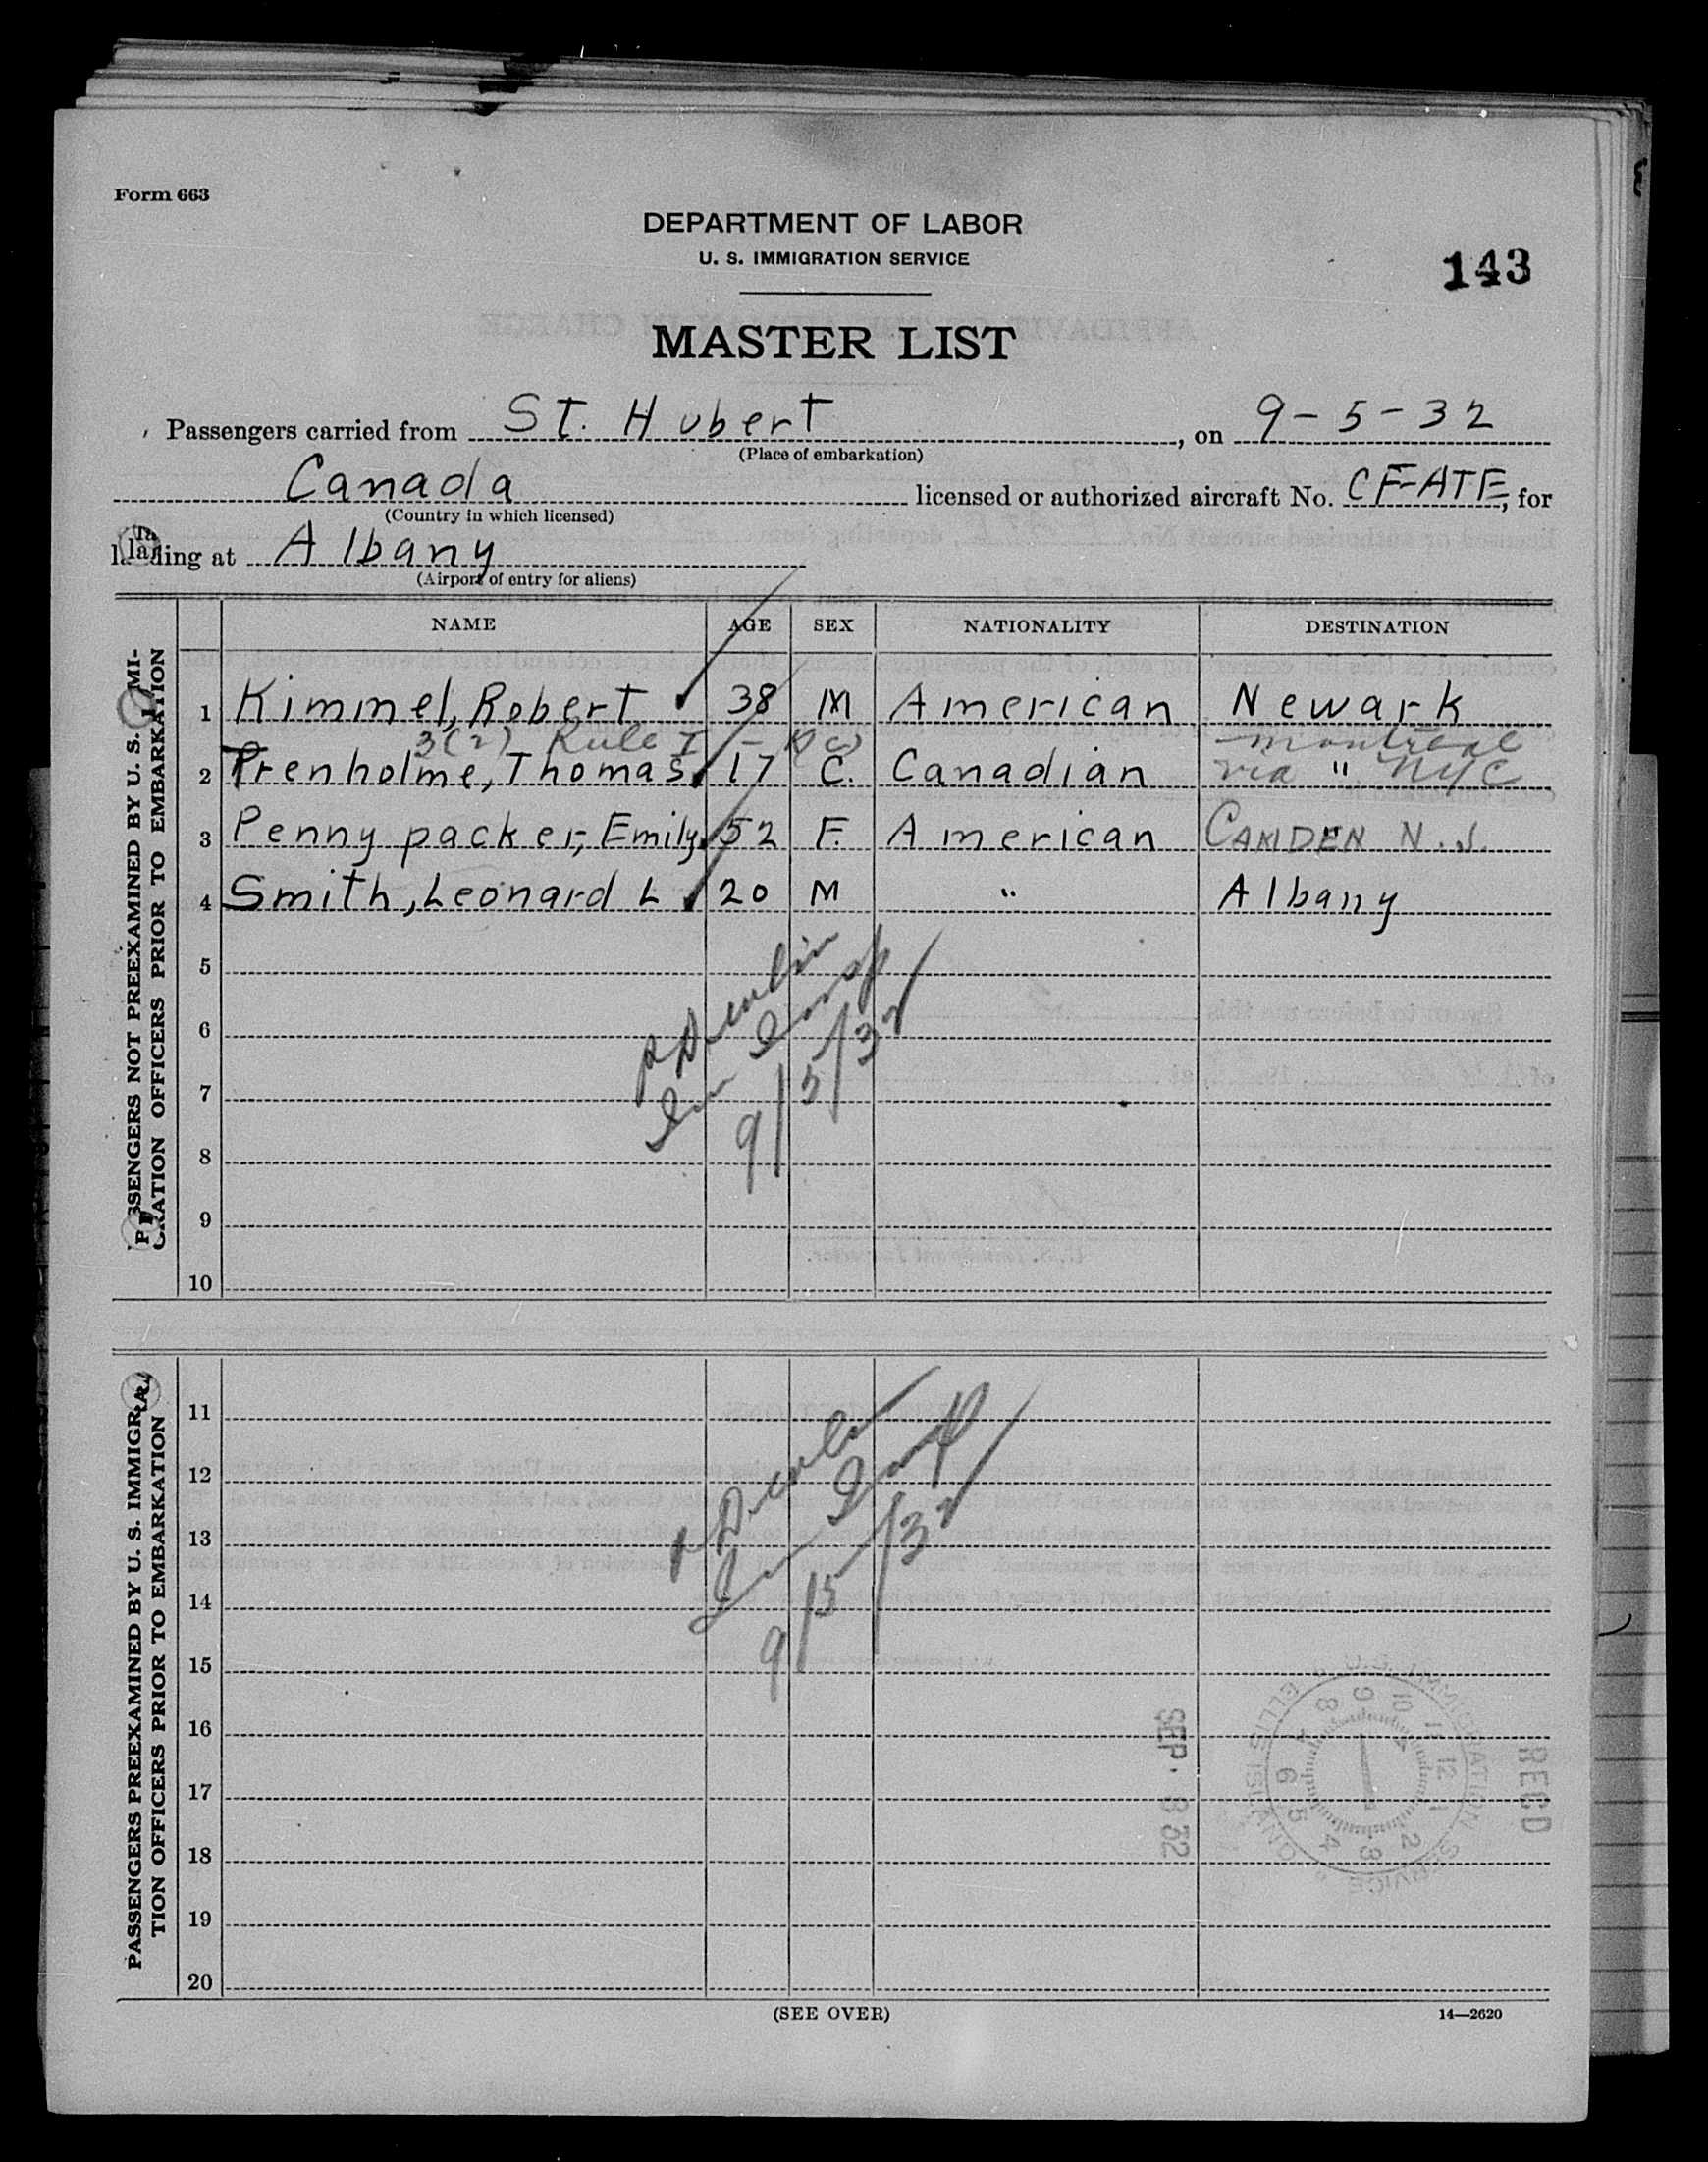 Form 663
DEPARTMENT OF LABOR
U. S. IMMIGRATION SERVICE
143
MASTER LIST
Passengers carried from St. Hubert, on 9-5-32
(Place of embarkation)
Canada licensed or authorized aircraft No. CF-ATE, for
(Country in which licensed)
landing at Albany
(Airport of entry for aliens)
NAME AGE SEX NATIONALITY DESTINATION
PASSENGERS NOT PREEXAMINED BY U. S. IMMI-
GRATION OFFICERS PRIOR TO EMBARKATION
1 Kimmel, Robert 38 M American Newark
3(2) Rule I Montreal
2 Trenholme, Thomas 17 C. Canadian via " NYC
3 Pennypacker, Emily 52 F. American CAMDEN N.J.
4 Smith, Leonard L 20 M " Albany
5
6
7
8
9
10
Imm Insp
9/5/32
PASSENGERS PREEXAMINED BY U. S. IMMIGRA-
TION OFFICERS PRIOR TO EMBARKATION
11
12
13
14
15
16
17
18
19
20
Imm Insp
9/5/32
SEP. 8 32
REC'D
U.S. IMMIGRATION SERVICE
ELLIS ISLAND
(SEE OVER)
14—2620